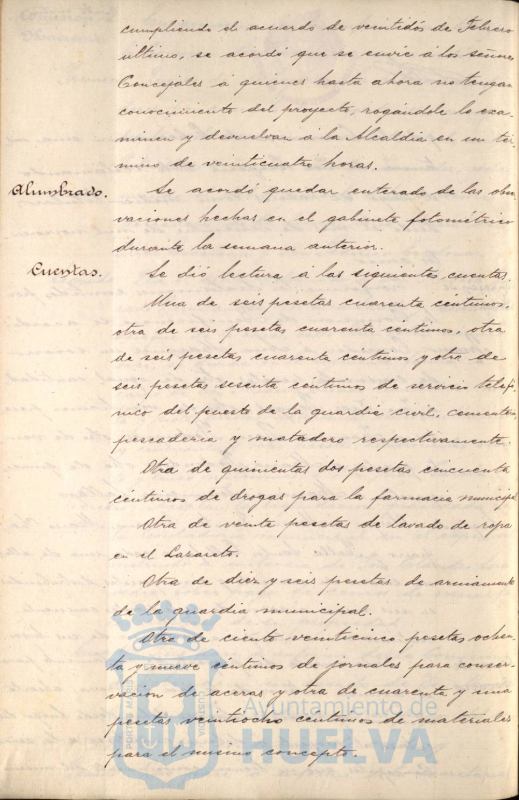 cumpliendo el acuerdo de veintidós de Febrero
último, se acordó que se envie á los señores
Concejales á quienes hasta ahora no tengan
conocimiento del proyecto, rogándole lo exa-
minen y devuelvan á la Alcaldia en un tér-
mino de veinticuatro horas.
Alumbrado. Se acordó quedar enterado de las obser
vaciones hechas en el gabinete fotométrico
durante la semana anterior.
Cuentas. Se dió lectura á las siguientes cuentas.
Una de seis pesetas cuarenta céntimos,
otra de seis pesetas cuarenta céntimos, otra
de seis pesetas cuarenta céntimos y otra de
seis pesetas sesenta céntimos de servicio telefó
nico del puesto de la guardia civil, cementerio,
pescaderia y matadero respectivamente.
Otra de quinientas dos pesetas cincuenta
céntimos de drogas para la farmacia municipal
Otra de veinte pesetas de lavado de ropa
en el Lazareto.
Otra de diez y seis pesetas de armamento
de la guardia municipal.
Otra de ciento veinticinco pesetas ochen-
ta y nueve céntimos de jornales para conser-
vación de aceras y otra de cuarenta y una
pesetas veintiocho céntimos de materiales
para el mismo concepto.
Ayuntamiento de
HUELVA